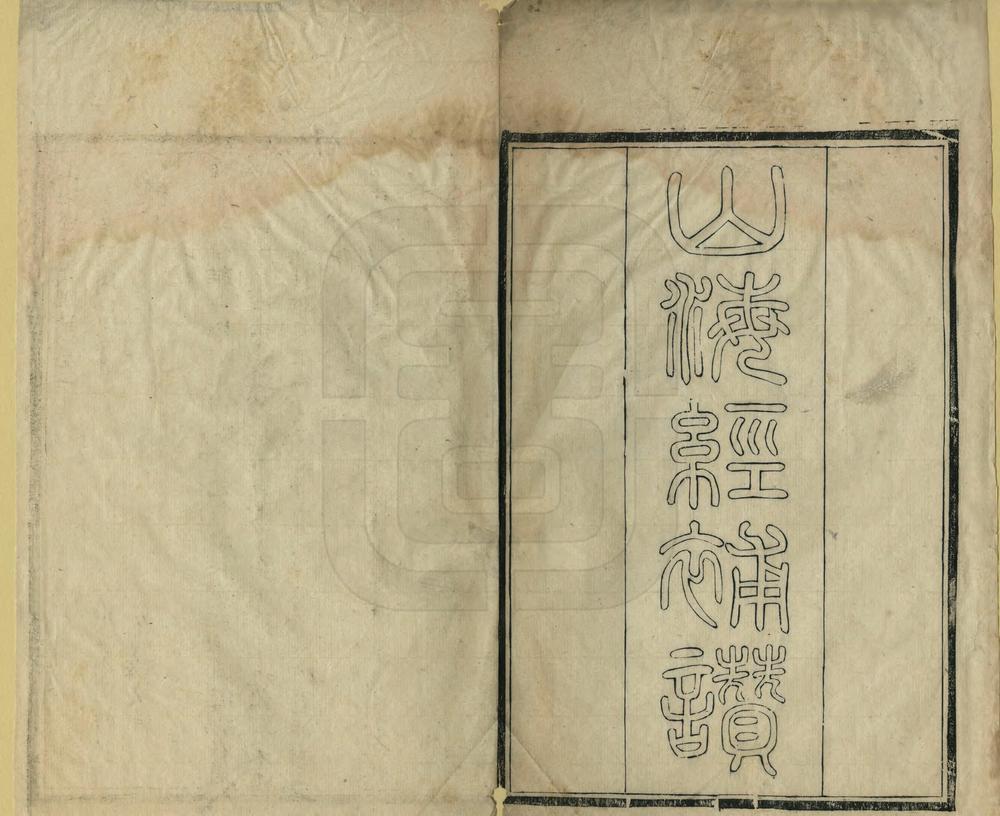 山海經補讚